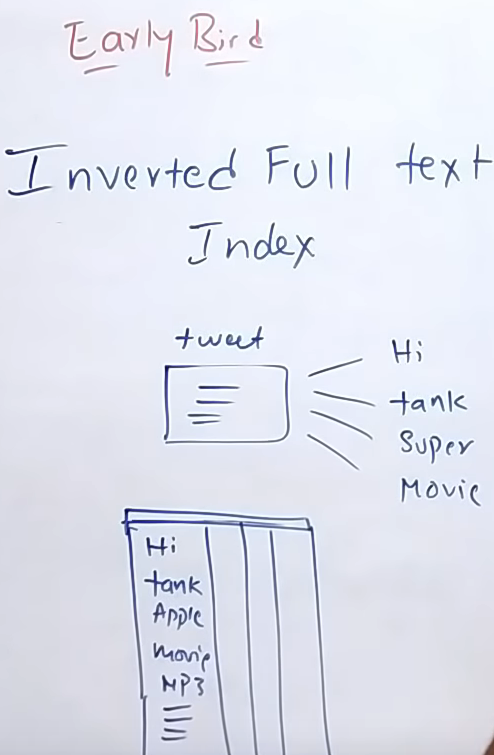 Early Bird
Inverted Full text
Index
tweet
Hi
tank
Super
Movie
Hi
tank
Apple
movie
MP3